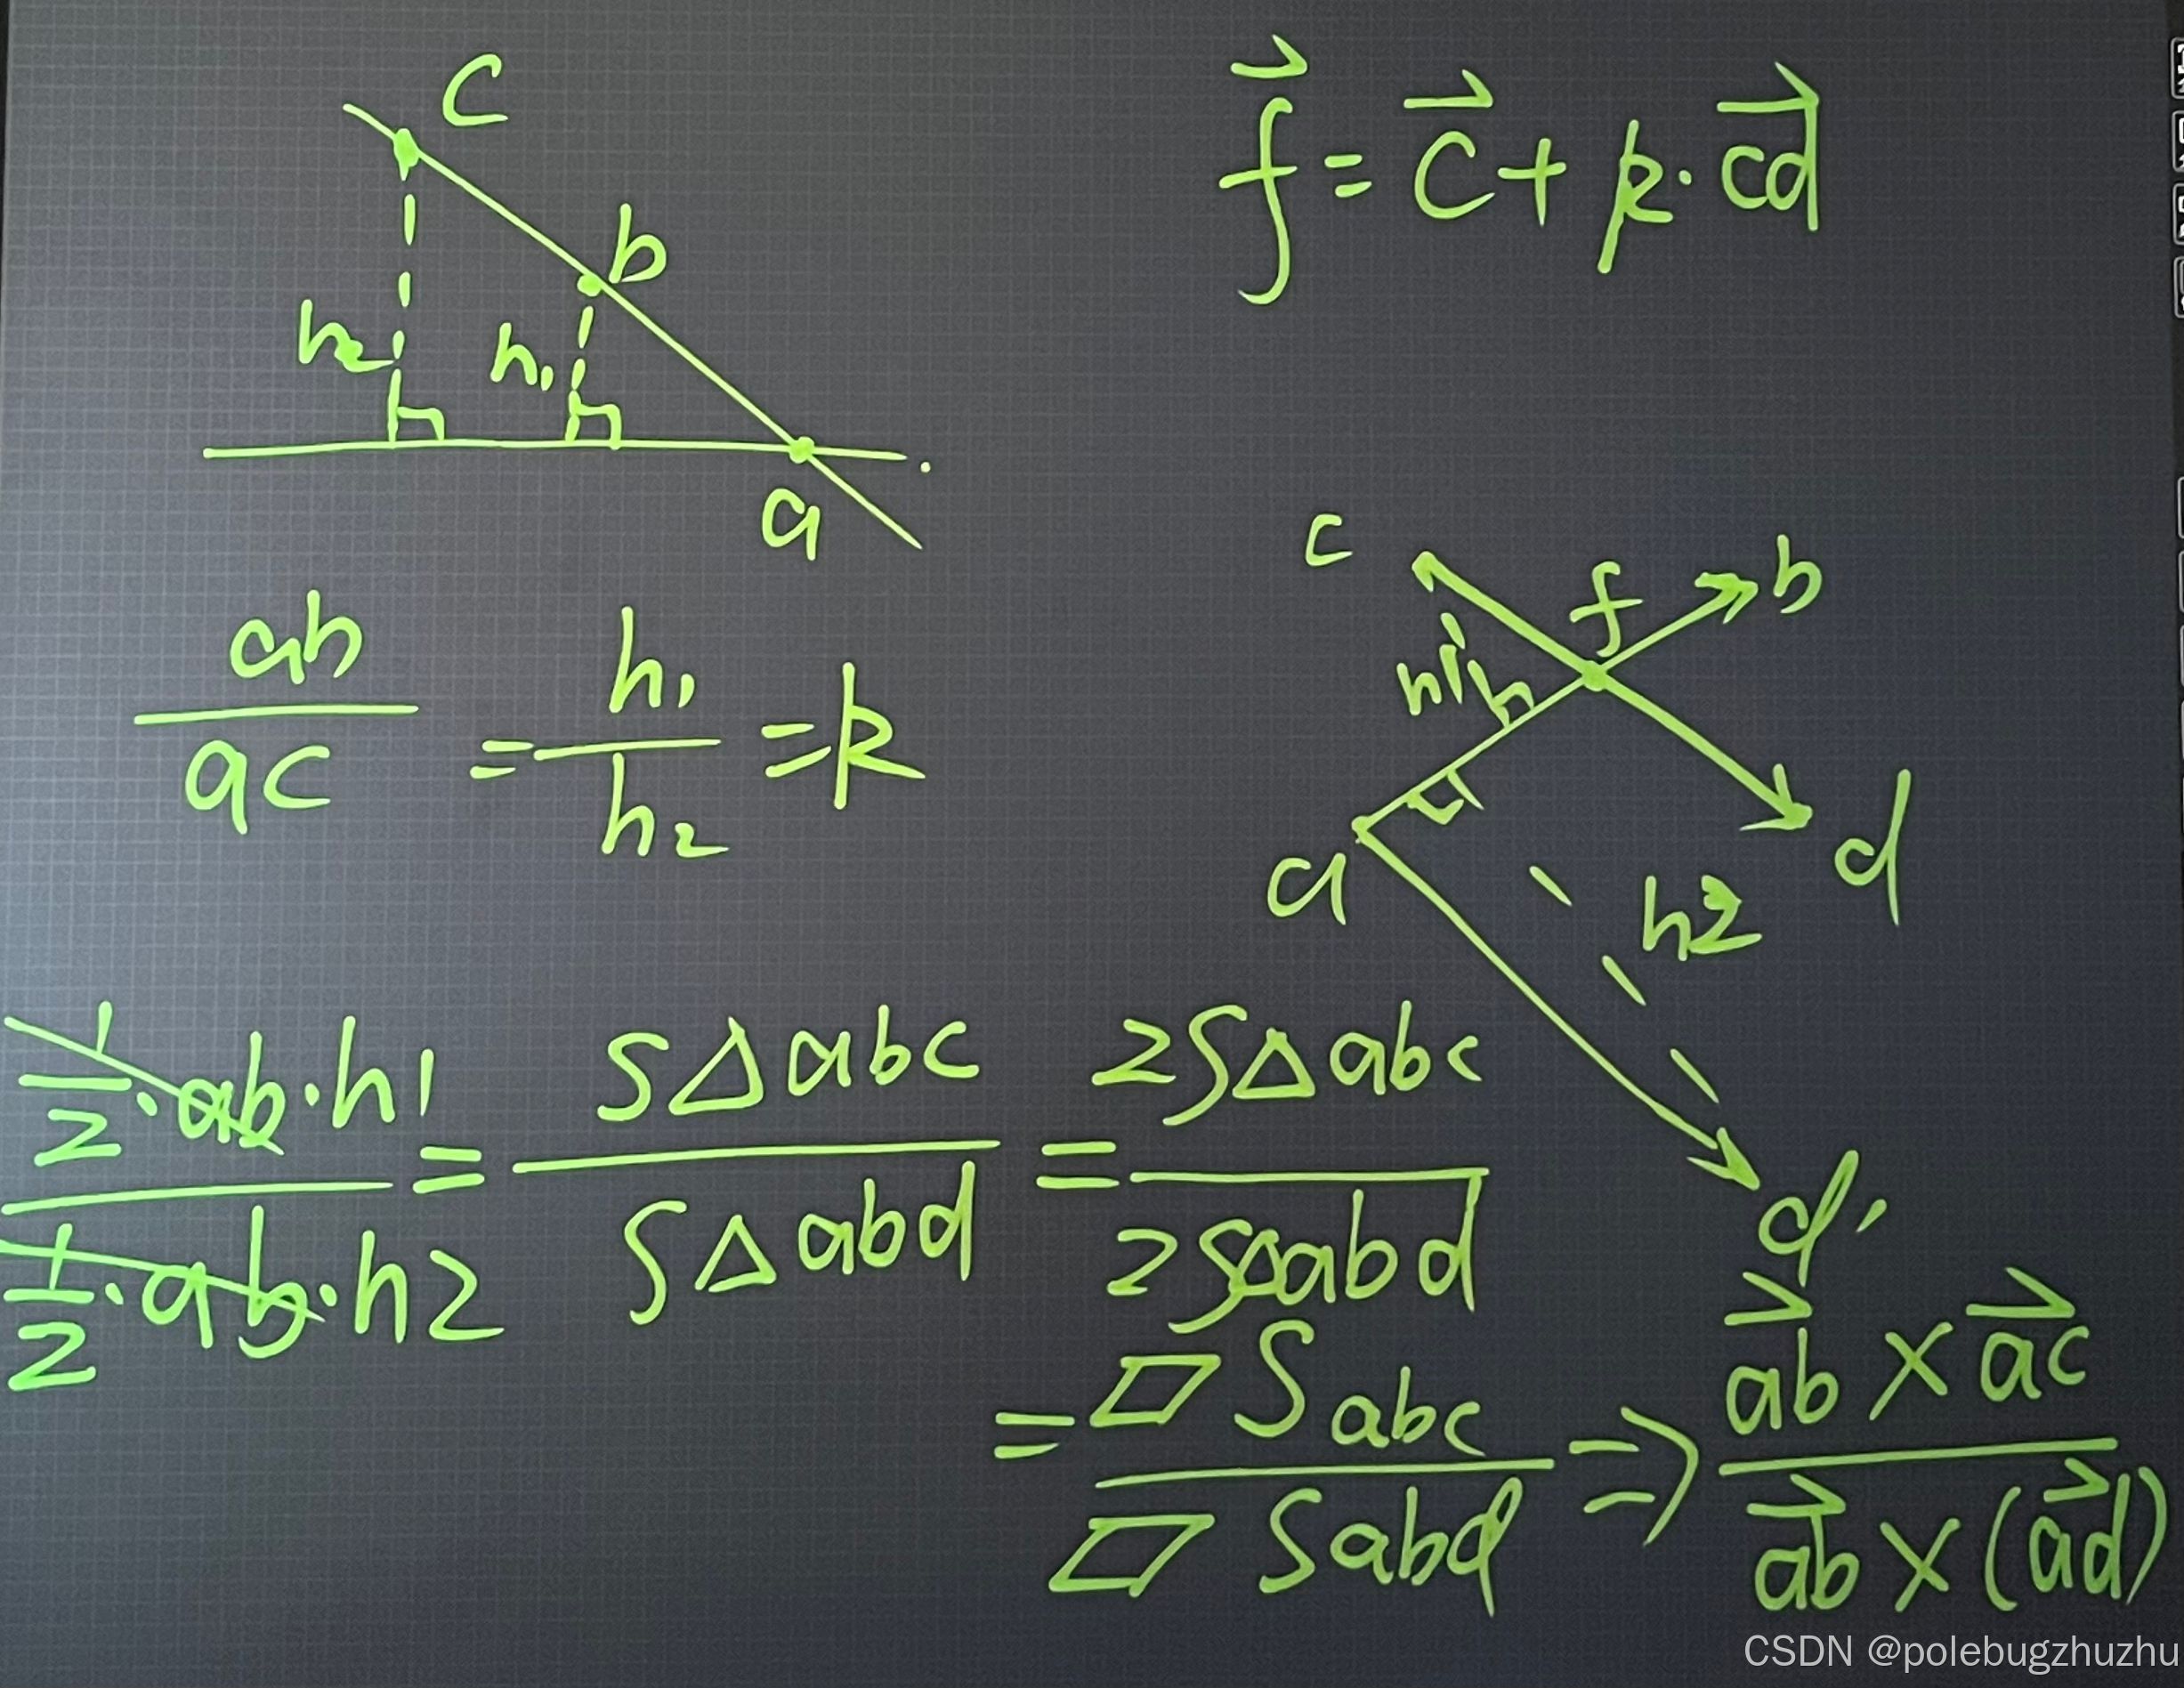 c
b
h₂ h₁
a
f⃗ = c⃗ + k · cd⃗
ab/ac = h₁/h₂ = k
c f b
h1
a d
h2
d'
(1/2 · ab · h1)/(1/2 · ab · h2) = S△abc/S△abd = 2S△abc/2S△abd
= ▱Sabc/▱Sabd ⇒ (ab⃗ × ac⃗)/(ab⃗ × (ad⃗))
CSDN @polebugzhuzhu